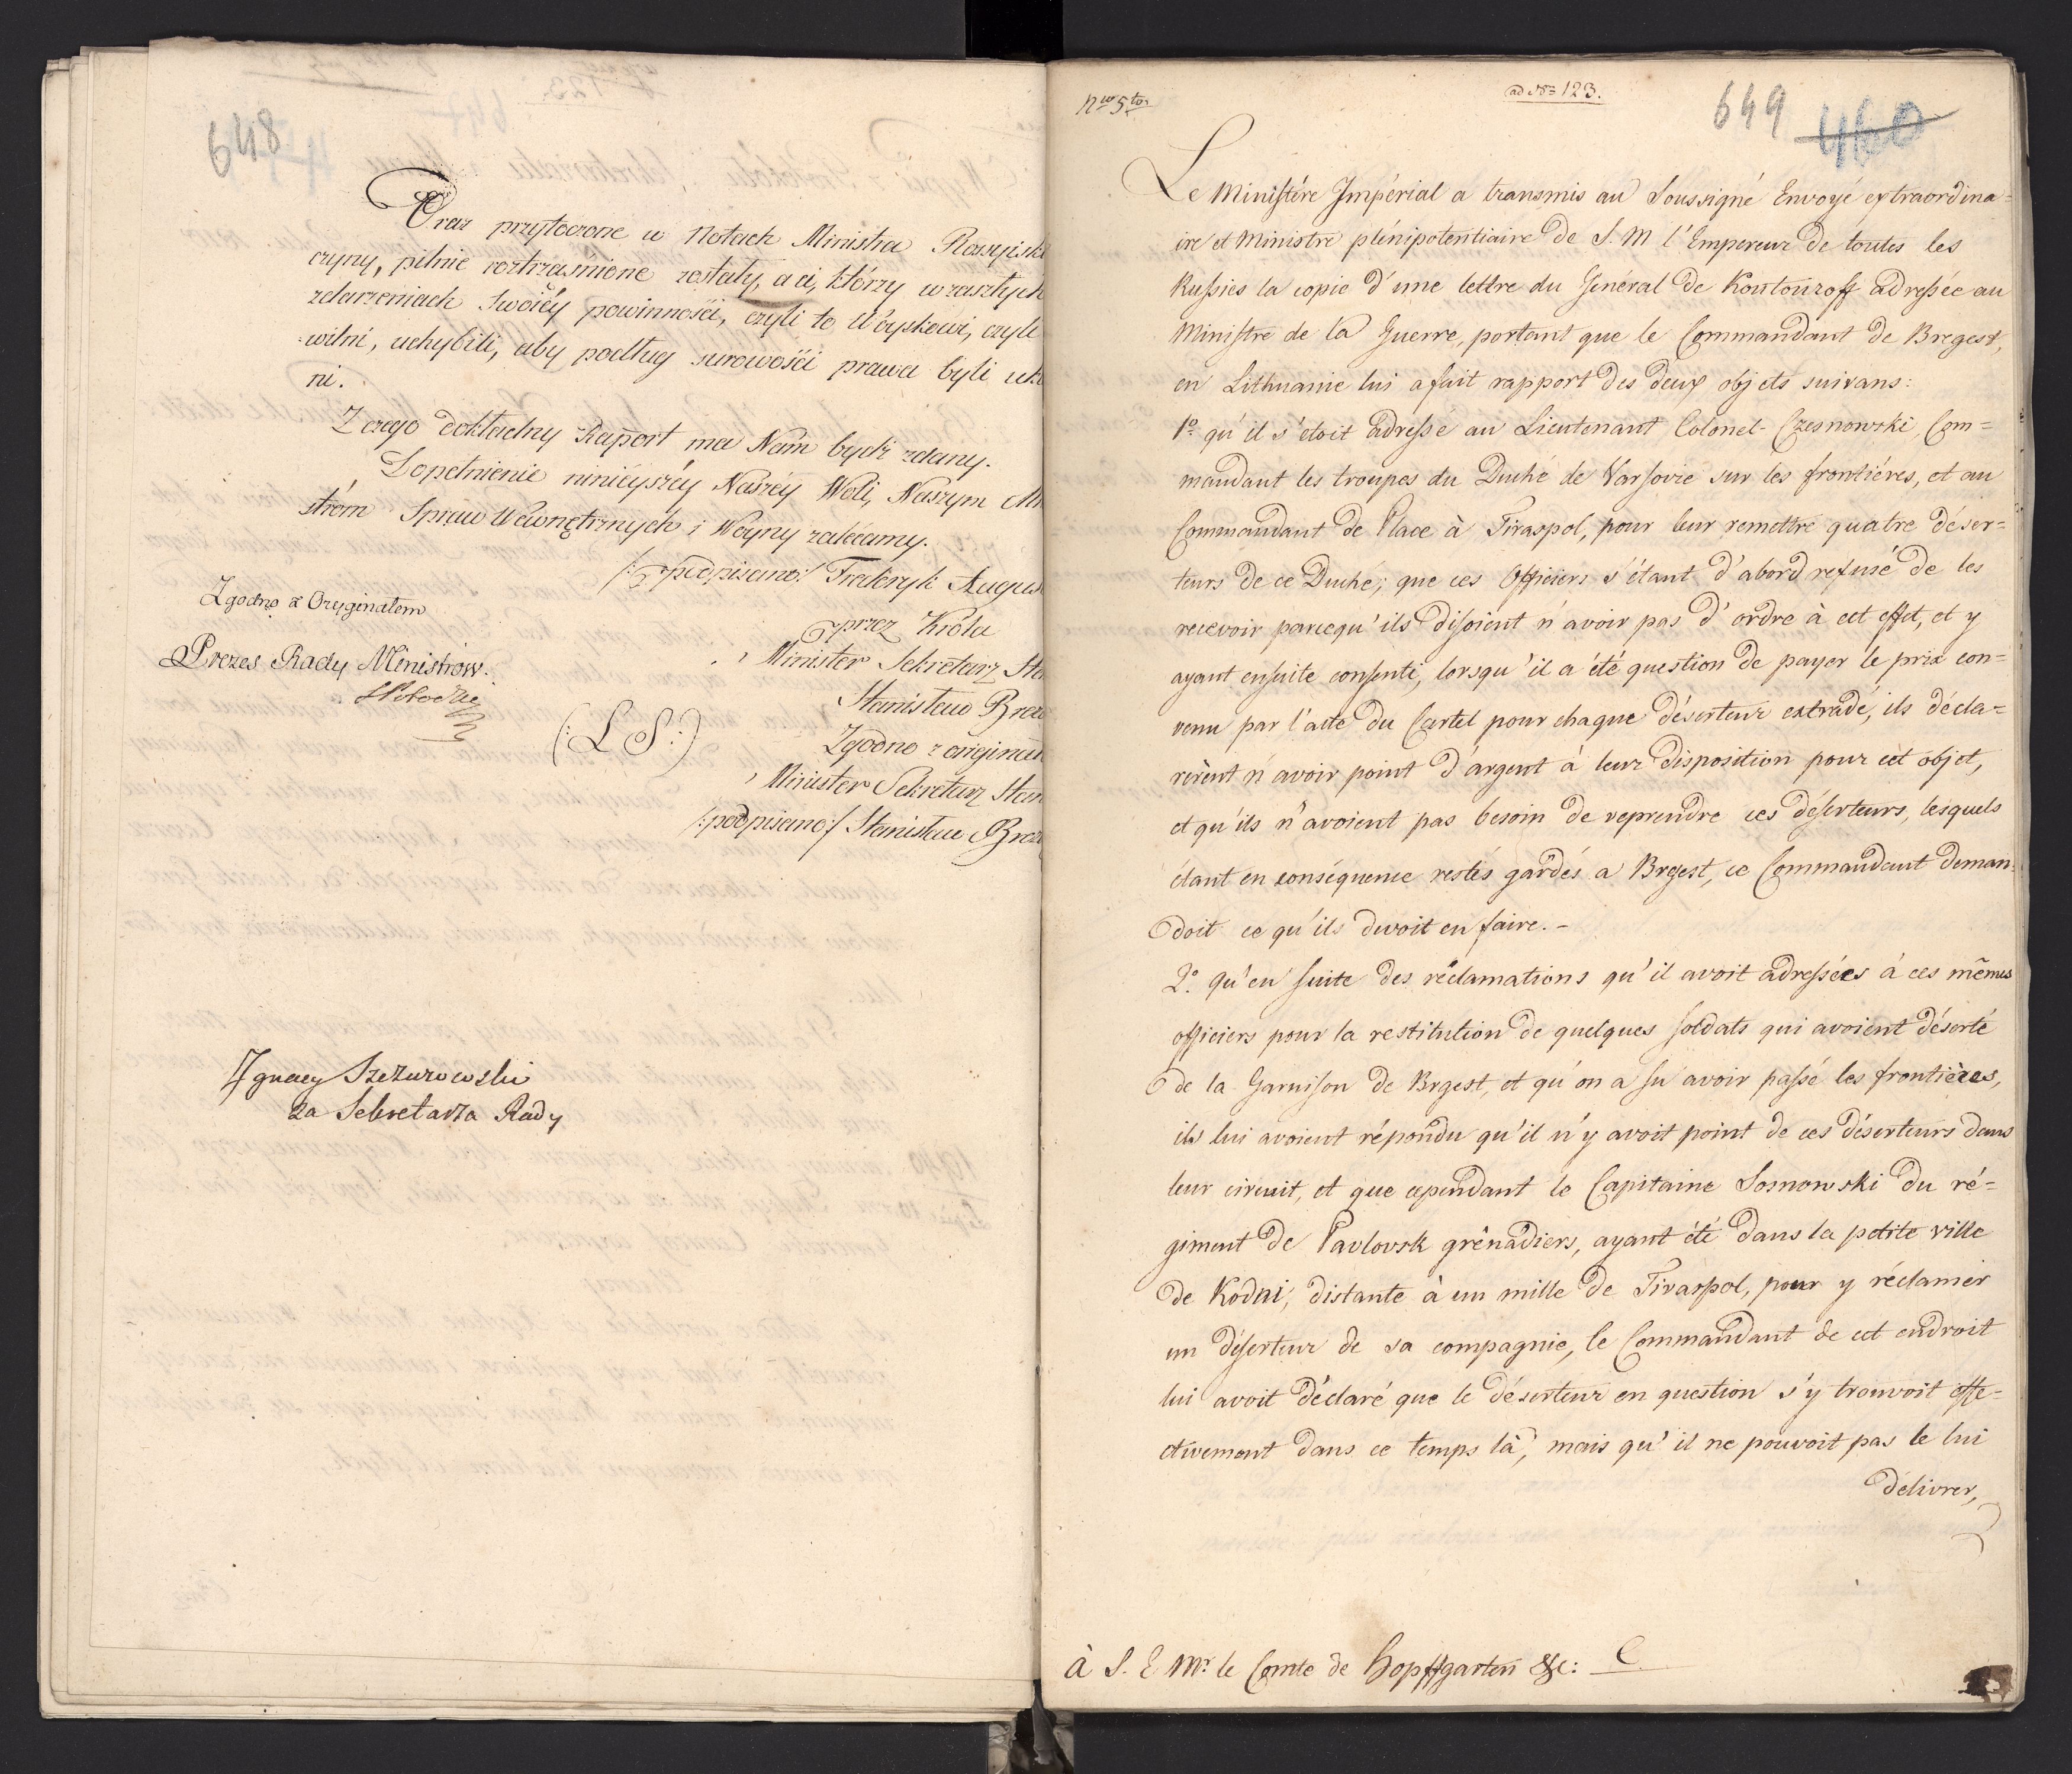 648
Oraz przytoczone w Notach Ministra Rossyisk
czyny, pilnie roztrzasnione zostały, a ci, którzy w zaszłych
zdarzeniach Swoiéy powinności, czyli to Woyskowi, czyli
wilni, uchybili, aby podług surowości prawa byli uka
ni.
Z czego dokładny Raport ma Nam bydź zdany.
Dopełnienie ninieyszéy Naszéy Woli, Naszym Mi
strom Spraw Wewnętrznych i Woyny zalécamy.
/:podpisano:/ Frederyk Augus
przez Króla
Minister Sekretarz Sta
Stanisław Brez
(:L S:)
Zgodno z originałe
Minister Sekretarz Stan
/:podpisano:/ Stanisław Brez
Zgodno z Oryginałem
Prezes Rady Ministrów.
Ignacy Szczurowski
za Sekretarza Rady
Nro 5to
ad No 123.
649 460
Le Ministére Impérial a transmis au Soussigné Envoyé extraordina=
ire et Ministre plénipotentiaire de S. M l'Empereur de toutes les
Russies la copie d'une lettre du Général de Koutouzoff adressée au
Ministre de la Guerre, portant que le Commandant de Bregest,
en Lithuanie lui a fait rapport des deux objets suivans:
1o qu'il s'étoit adressé au Lieutenant Colonel Czesnowski, Com=
mandant les troupes du Duché de Varsovie sur les frontiéres, et au
Commandant de Place à Tiraspol, pour leur remettre quatre déser=
teurs de ce Duché; que ces Officiers s'étant d'abord refusé de les
recevoir parcequ'ils disoient n'avoir pas d'ordre à cet effet, et y
ayant ensuite consenti, lorsqu'il a été question de payer le prix con=
venu par l'acte du Cartel pour chaque déserteur extradé, ils décla=
rèrent n'avoir point d'argent à leur disposition pour cet objet,
et qu'ils n'avoient pas besoin de reprendre ces déserteurs, lesquels
étant en conséquence restés gardés a Brgest, ce Commandant deman=
doit ce qu'ils devoit en faire. -
2o. qu'en suite des réclamations qu'il avoit adressées à ces mêmes
officiers pour la restitution de quelques soldats qui avoient déserté
de la Garnison de Brgest, et qu'on a su avoir passé les frontières,
ils lui avoient répondu qu'il n'y avoit point de ces déserteurs dans
leur circuit, et que cependant le Capitaine Sosnowski du ré=
giment de Pavlovsk grénadiers, ayant été dans la petite ville
de Kodni, distante à un mille de Tiraspol, pour y réclamer
un déserteur de sa compagnie, le Commandant de cet endroit
lui avoit déclaré que le déserteur en question s'y trouvoit effe=
ctivement dans ce temps là, mais qu'il ne pouvoit pas le lui
délivrer,
à S. E Mr. le Comte de Hopffgarten &c: